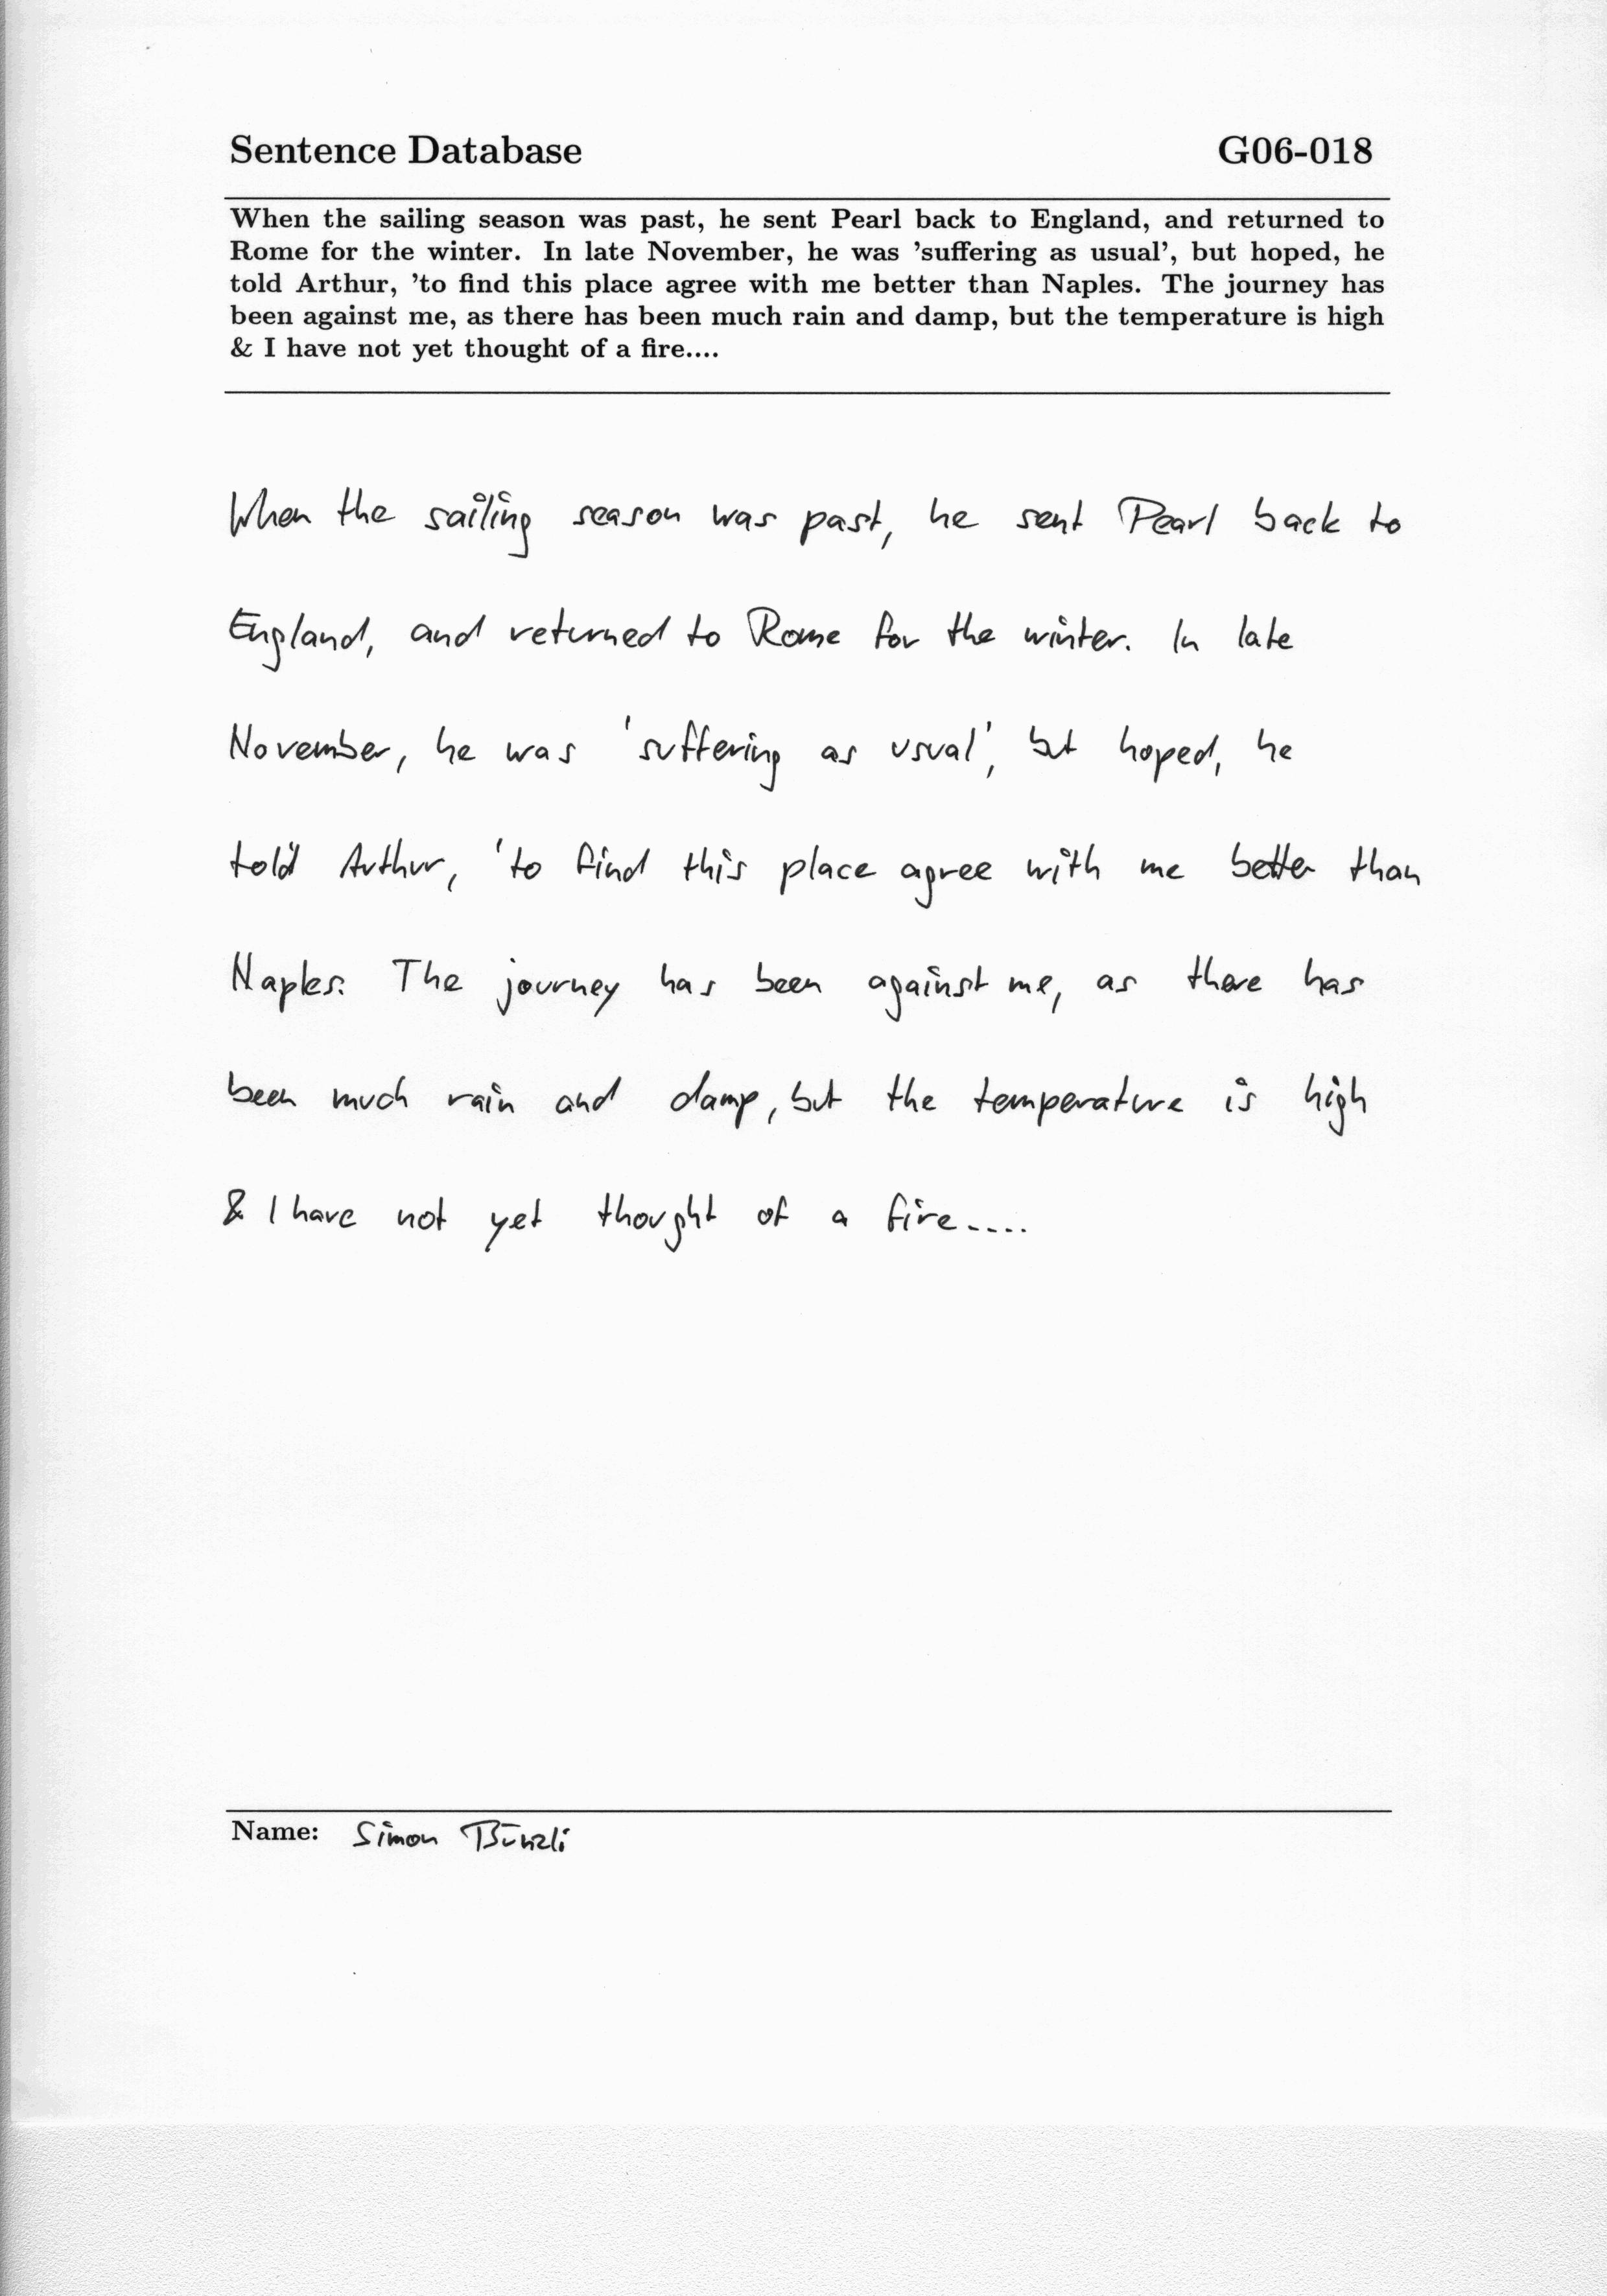 Sentence Database G06-018
When the sailing season was past, he sent Pearl back to England, and returned to
Rome for the winter. In late November, he was 'suffering as usual', but hoped, he
told Arthur, 'to find this place agree with me better than Naples. The journey has
been against me, as there has been much rain and damp, but the temperature is high
& I have not yet thought of a fire....
When the sailing season was past, he sent Pearl back to
England, and returned to Rome for the winter. In late
November, he was 'suffering as usual', but hoped, he
told Arthur, 'to find this place agree with me better than
Naples. The journey has been against me, as there has
been much rain and damp, but the temperature is high
& I have not yet thought of a fire....
Name: Simon Bünzli